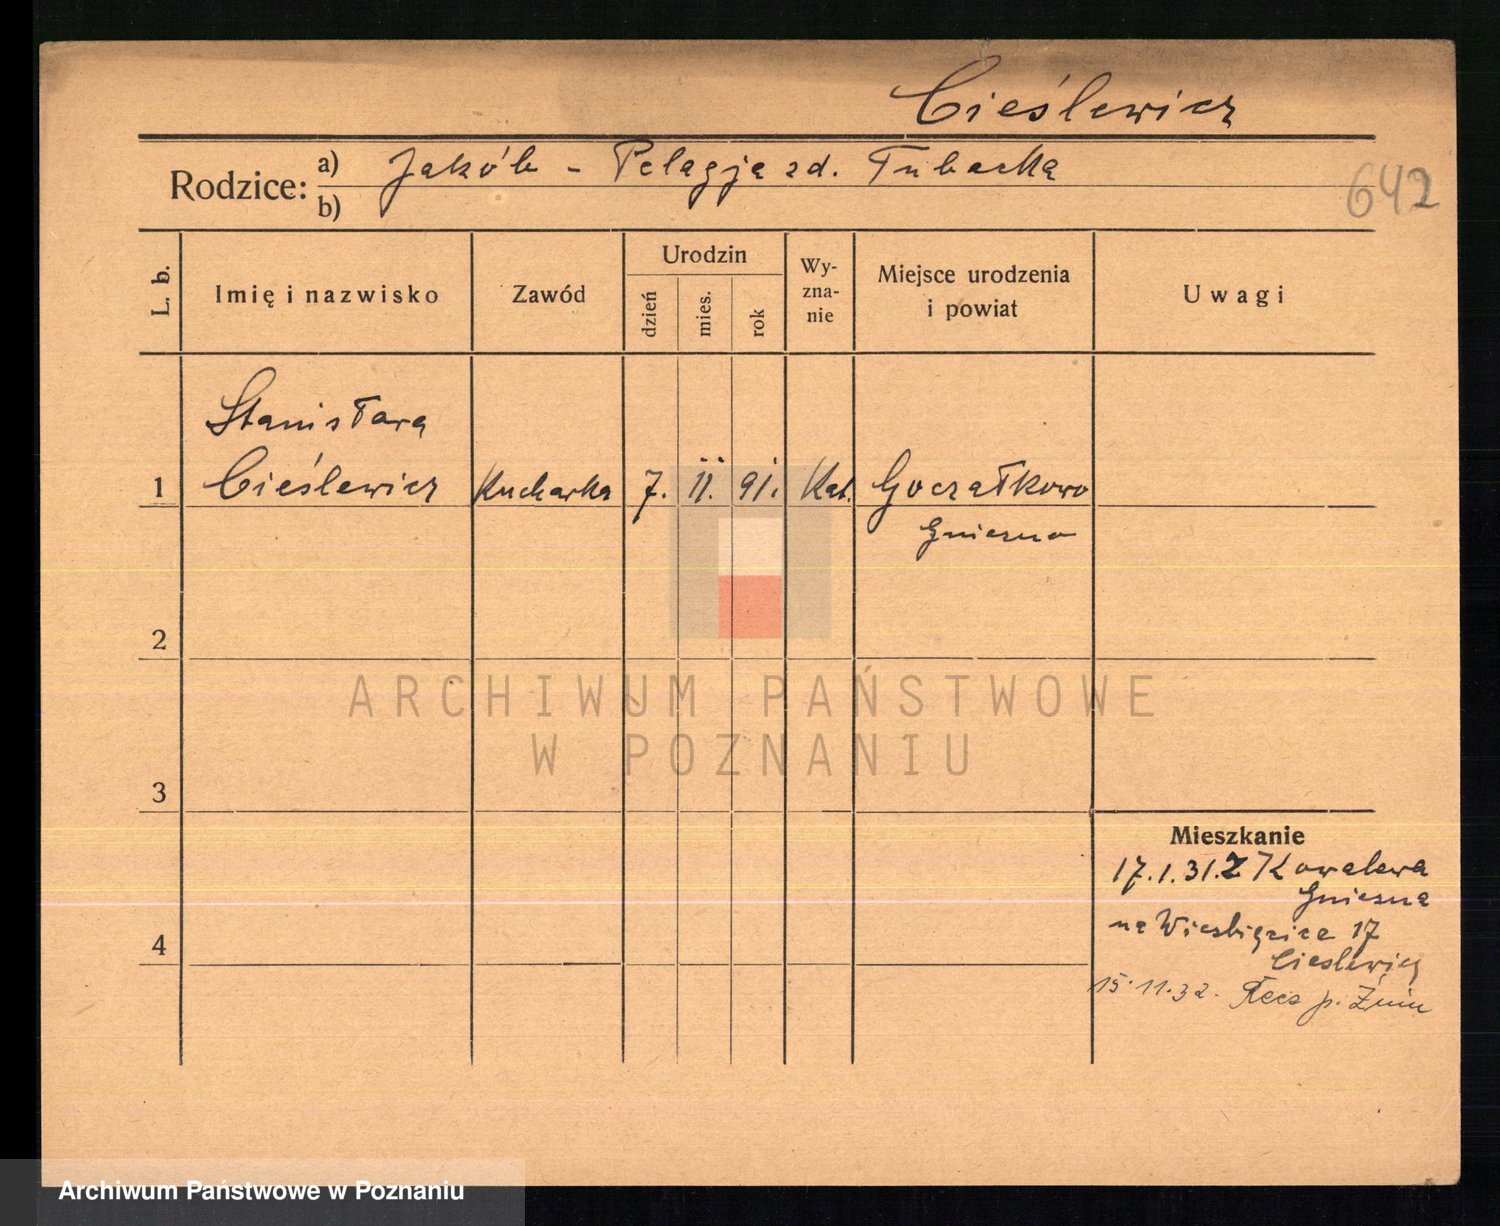 Cieślewicz
Rodzice: a) Jakób - Pelagja zd. Tubacka
b)
642
L. b.
Imię i nazwisko
Zawód
Urodzin
dzień
mies.
rok
Wy-
zna-
nie
Miejsce urodzenia
i powiat
Uwagi
Stanisława
1 Cieślewicz Kucharka 7. II. 91. Kat. Goczałkowo
Gniezno
2
3
4
Mieszkanie
17.1.31. Z Kowalewa
Gniezna
na 17
Cieslewicz
15.11.32. p. Żnin
ARCHIWUM PAŃSTWOWE
W POZNANIU
Archiwum Państwowe w Poznaniu